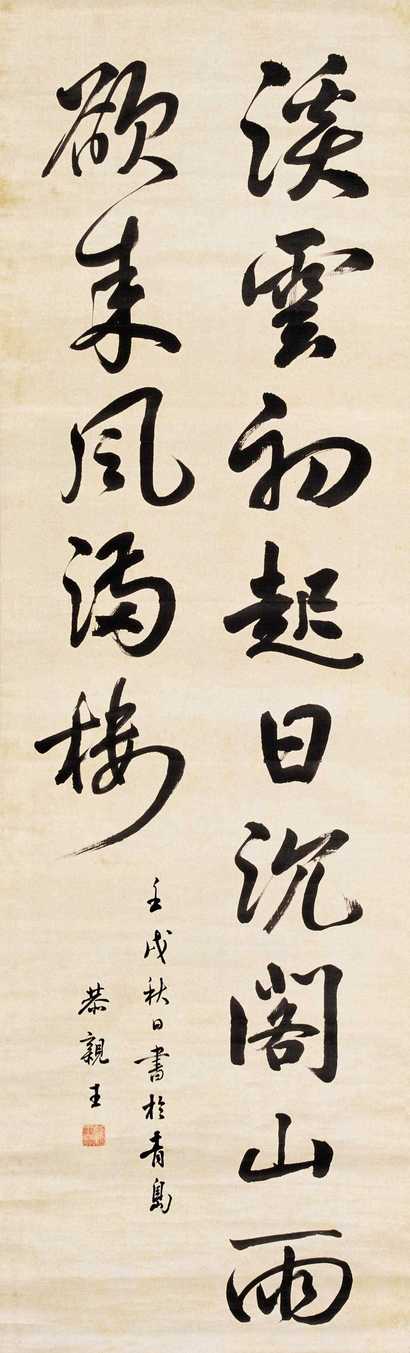 溪雲初起日沉閣山雨
欲来風滿樓
壬戌秋日書於青島
恭親王